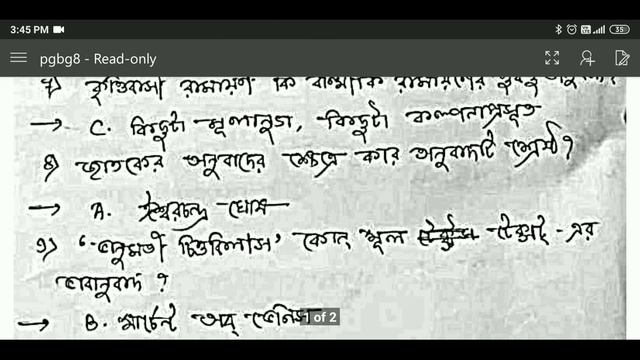 3:45 PM
35
pgbg8 - Read-only
৭) কৃত্তিবাসী রামায়ণ কি বাল্মীকি রামায়ণের হুবহু
→ C. কিছুটা মূলানুগ, কিছুটা কল্পনাপ্রসূত
৪) জাতকের অনুবাদের ক্ষেত্রে কার অনুবাদটি শ্রেষ্ঠ?
→ A. ঈশ্বরচন্দ্র ঘোষ
৯) 'ভানুমতী চিত্তবিলাস' কোন্ মূল টেক্সট্ -এর
ভাবানুবাদ ?
→ B. মার্চেন্ট অব্ ভেনিস
1 of 2